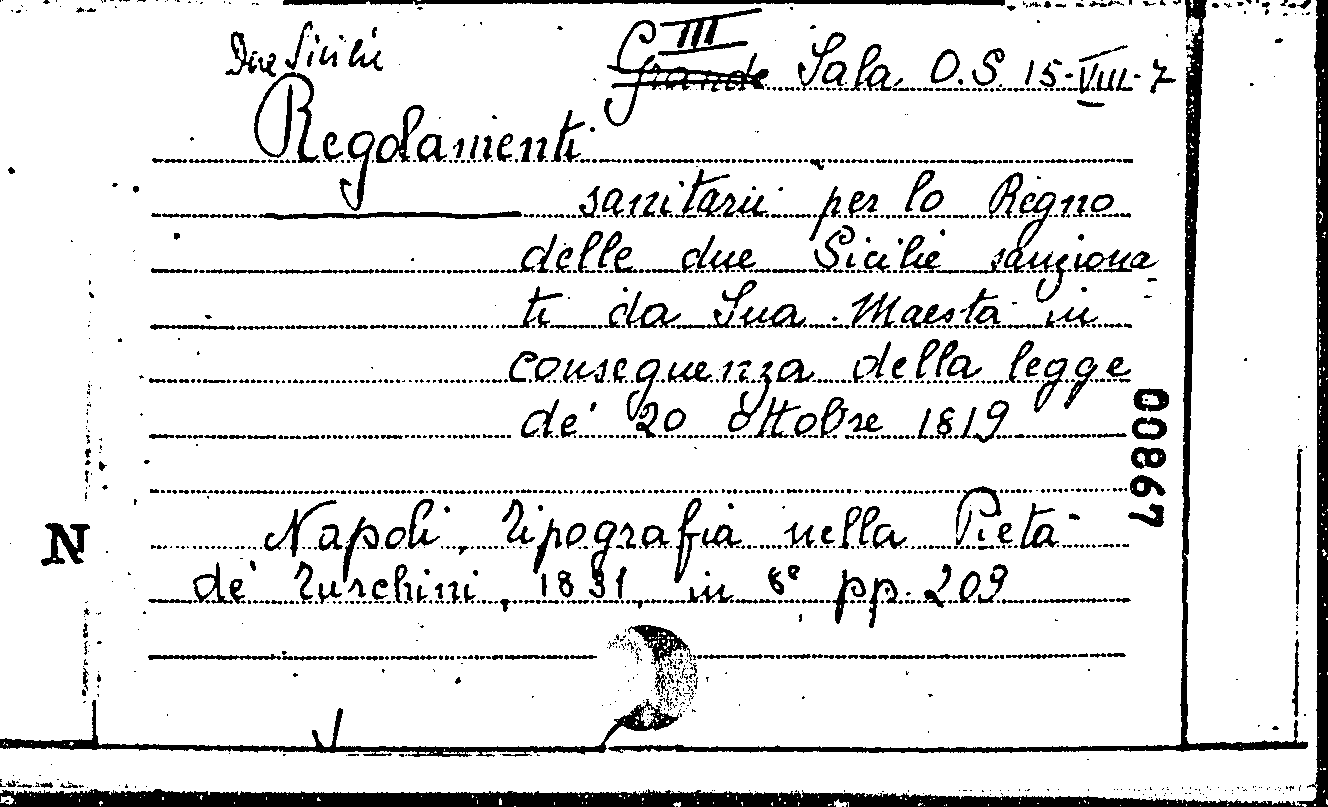 Due Sicilie
III
Grande Sala O.S. 15-VIII-7
Regolamenti
sanitarii per lo Regno
delle due Sicilie sanziona
ti da Sua Maestà in
conseguenza della legge
de' 20 ottobre 1819
00867
N
Napoli, Tipografia nella Pietà
de' Turchini, 1831, in 8° pp. 209